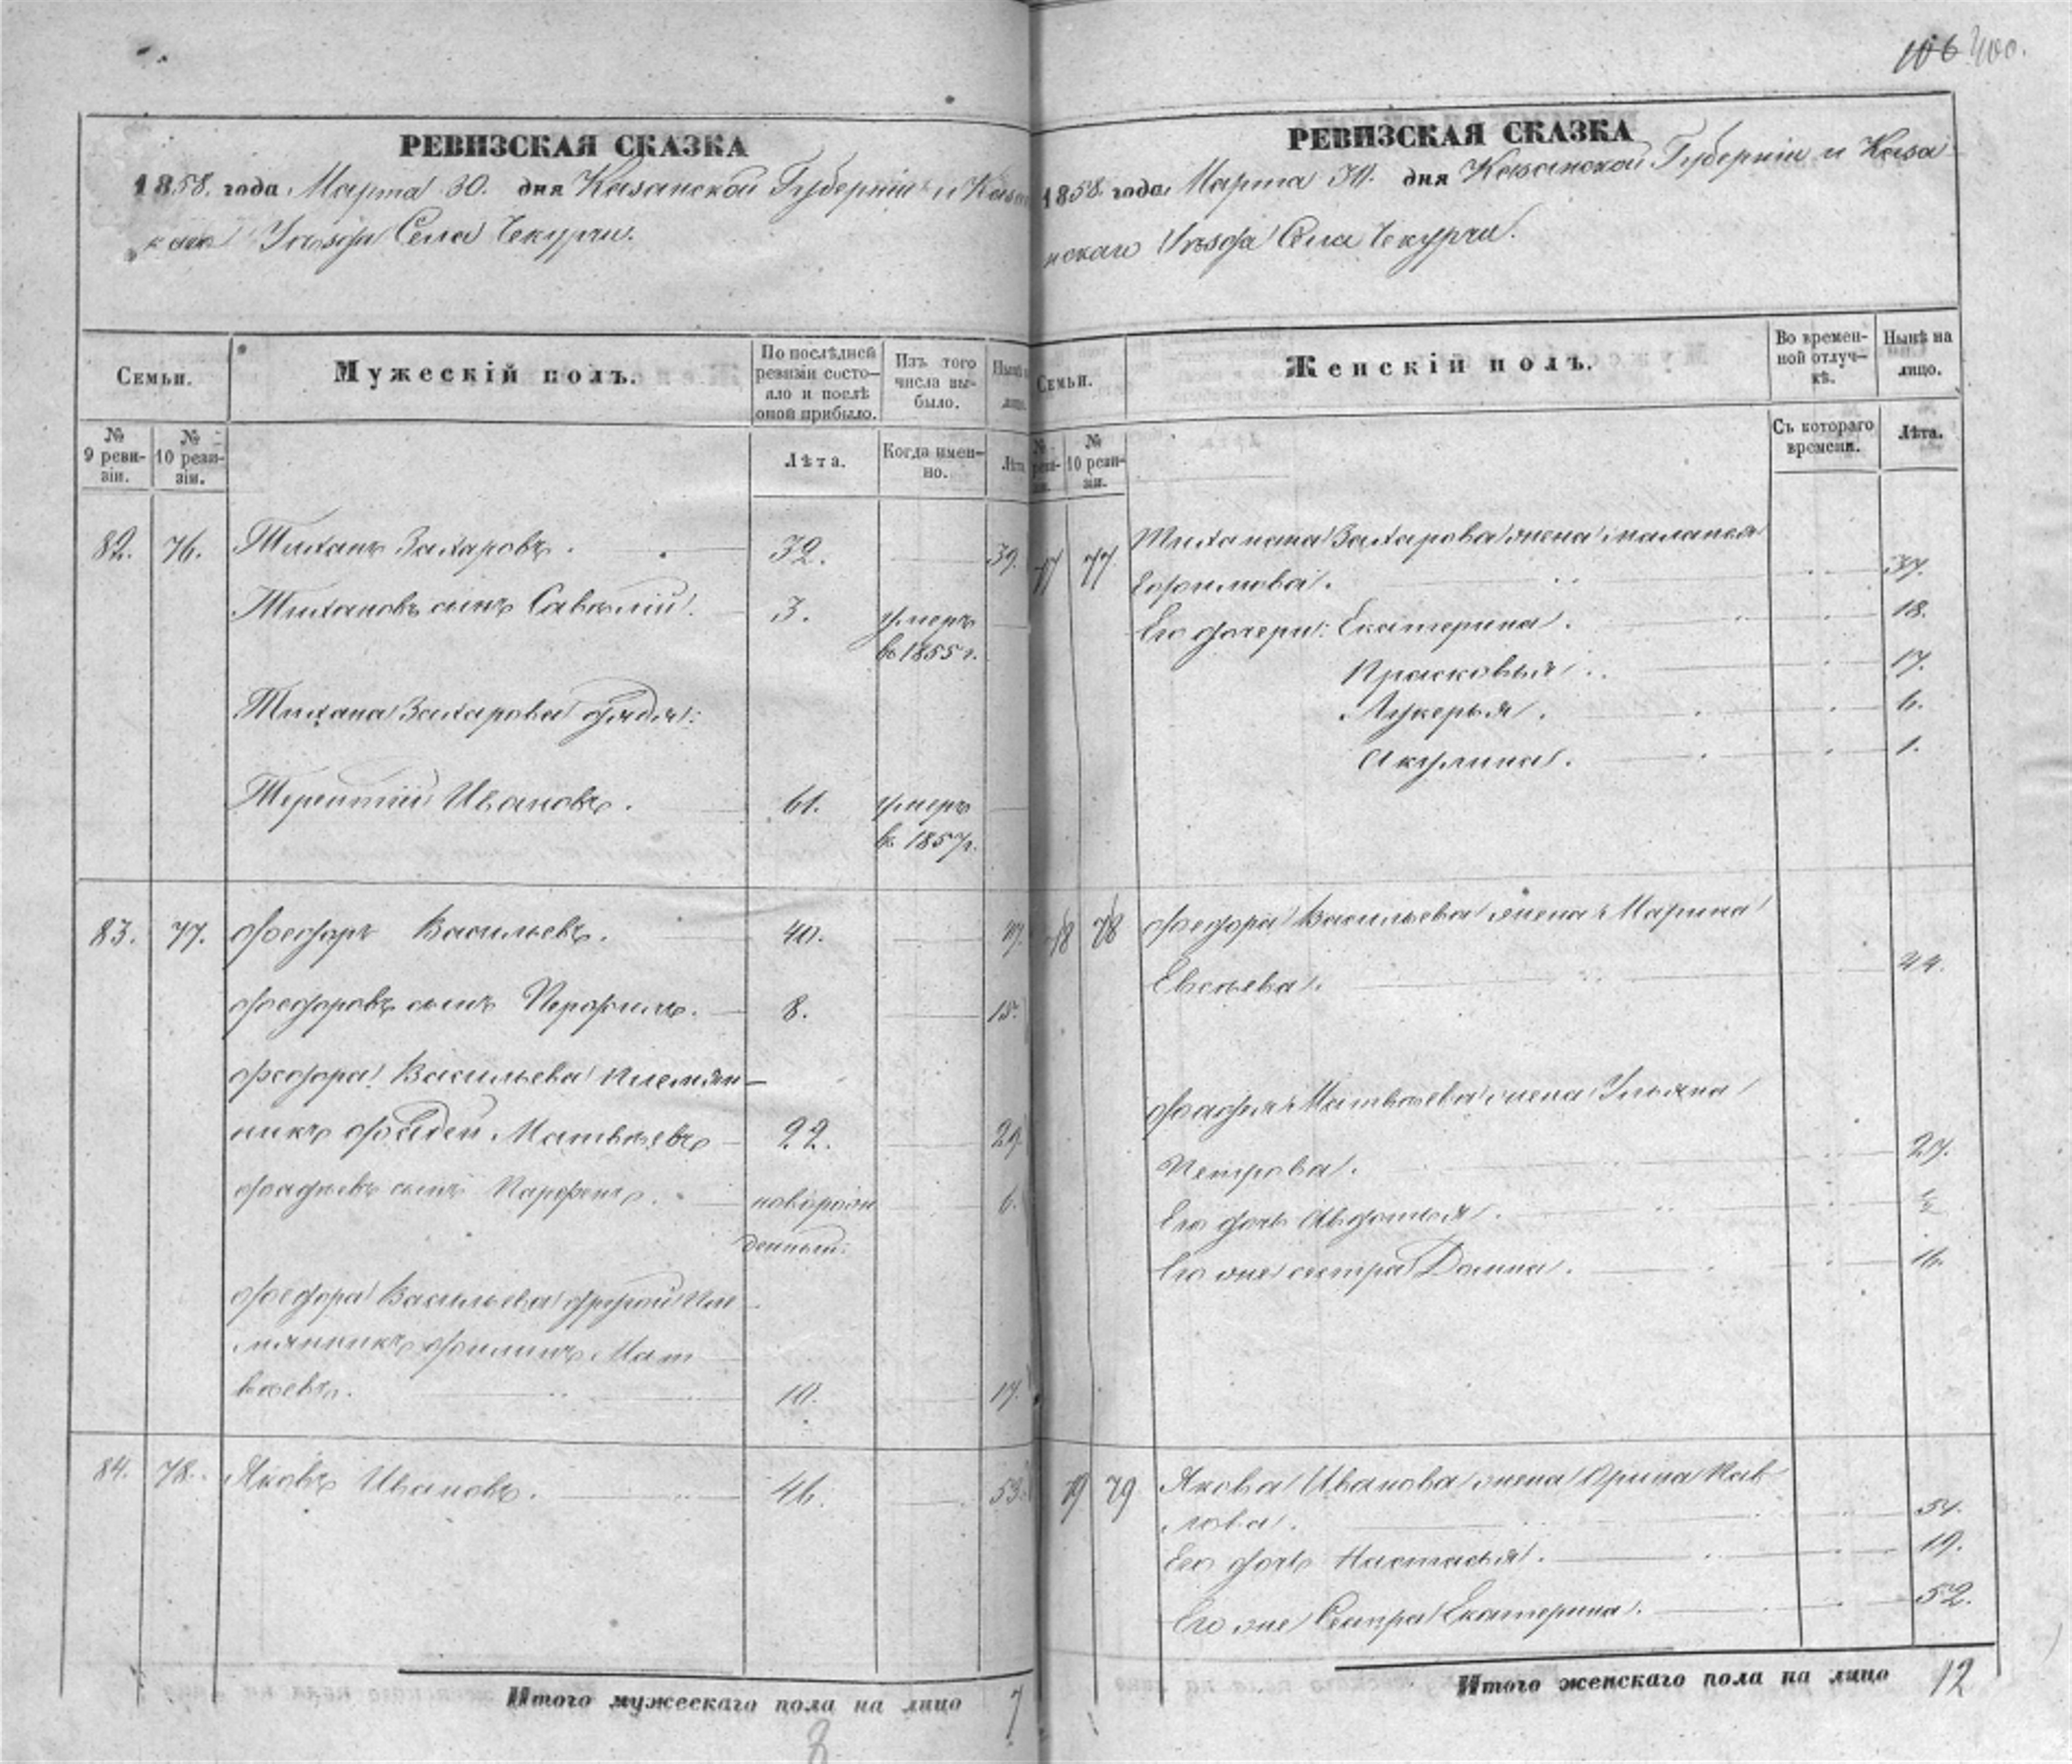 106 400.
РЕВИЗСКАЯ СКАЗКА
1858. года Марта 30. дня Казанской Губерніи и Казан
скаго Уѣзда Села Чекурчи.
Семьи.
Мужескій полъ.
По послѣдней
ревизіи состо-
яло и послѣ
оной прибыло.
Изъ того
числа вы-
было.
Нынѣ
лицо.
№
9 реви-
зіи.
№
10 реви-
зіи.
Лѣта.
Когда имен-
но.
Лѣта
82. 76. Тиханъ Захаровъ. 32. 39.
Тихановъ сынъ Савелій. 3. умеръ
въ 1855 г.
Тихана Захарова дядя:
Терентій Ивановъ. 61. умеръ
въ 1857 г.
83. 77. Федоръ Васильевъ. 40. 47.
Федоровъ сынъ Перфилъ. 8. 15.
Федора Васильева племян-
никъ Фадей Матвѣевъ 22. 29.
Фадѣевъ сынъ Парфенъ. новорож 6.
денный.
Федора Васильева другой пле
мянникъ Филипъ Мат
вѣевъ. 10. 17.
84. 78. Яковъ Ивановъ. 46. 53.
Итого мужескаго пола на лицо 7
8
РЕВИЗСКАЯ СКАЗКА
1858. года Марта 30. дня Казанской Губерніи и Каза
нскаго Уѣзда Села Чекурчи.
Семьи.
Женскій полъ.
Во времен-
ной отлуч-
кѣ.
Нынѣ на
лицо.
№
реви-
зіи.
№
10 реви-
зіи.
Съ котораго
времени.
Лѣта.
77 77 Тихана Захарова жена Маланья
Ефимова. 37.
Его дочери: Екатерина. 18.
Прасковья. 17.
Лукерья. 6.
Акулина. 1.
78 78 Федора Васильева жена Марина
Евсѣева. 44.
Фадея Матвѣева жена Ульяна
Петрова. 27.
Его дочь Авдотья. ½
Его же сестра Домна. 16.
79 79 Якова Иванова жена Орина Пав
лова. 54.
Его дочь Настасья. 19.
Его же Сестра Екатерина. 52.
Итого женскаго пола на лицо 12